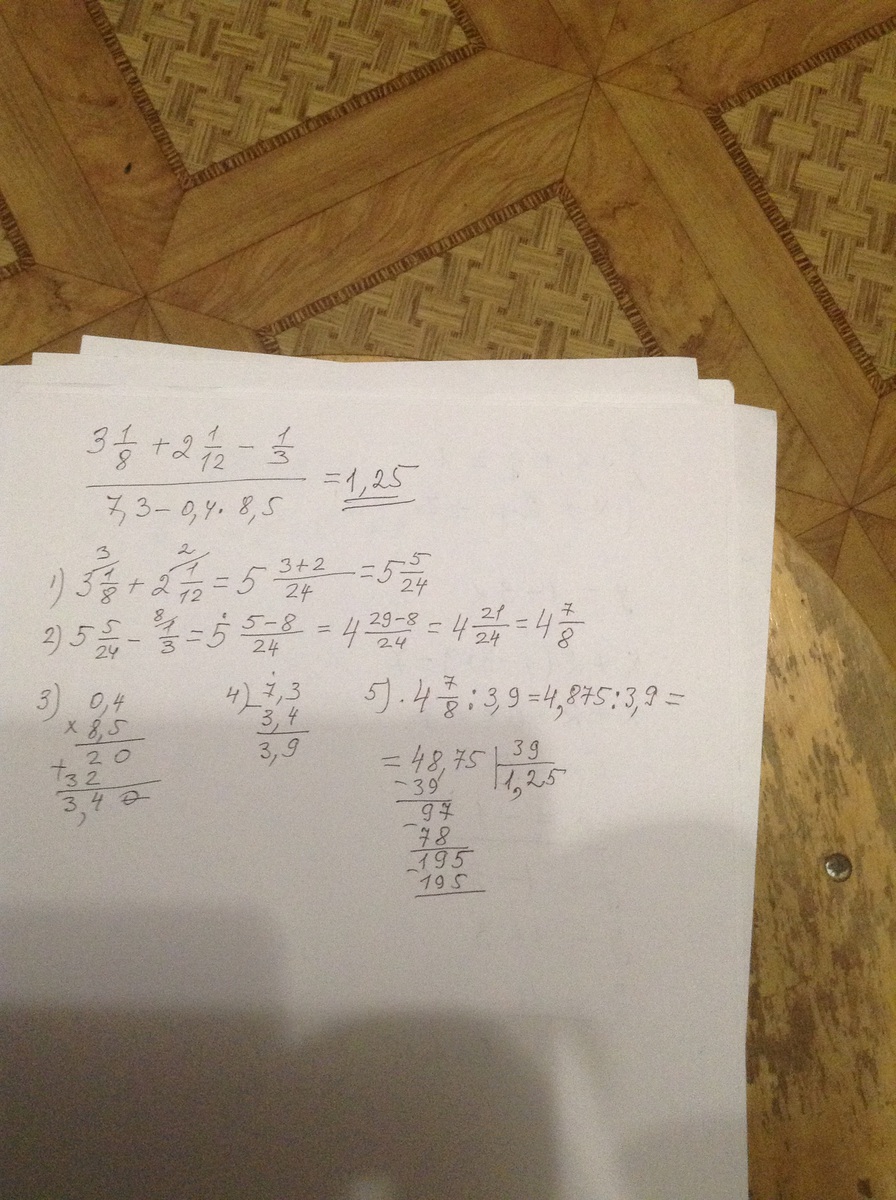 3 1/8 + 2 1/12 - 1/3
7,3 - 0,4 · 8,5
= 1,25
1) 3 1/8 + 2 1/12 = 5 3+2/24 = 5 5/24
3 2
2) 5 5/24 - 1/3 = 5 5-8/24 = 4 29-8/24 = 4 21/24 = 4 7/8
8
3) 0,4
× 8,5
2 0
+ 32
3,4 0
4) - 7,3
3,4
3,9
5) · 4 7/8 : 3,9 = 4,875 : 3,9 =
= 48,75 | 39
- 39 1,25
97
- 78
195
- 195